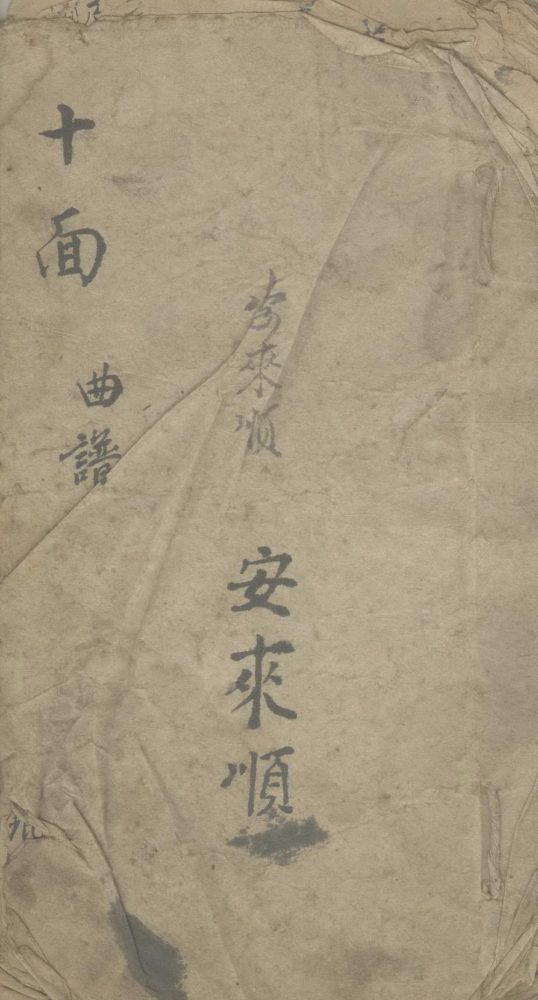 安來順
安來順
十面
曲譜